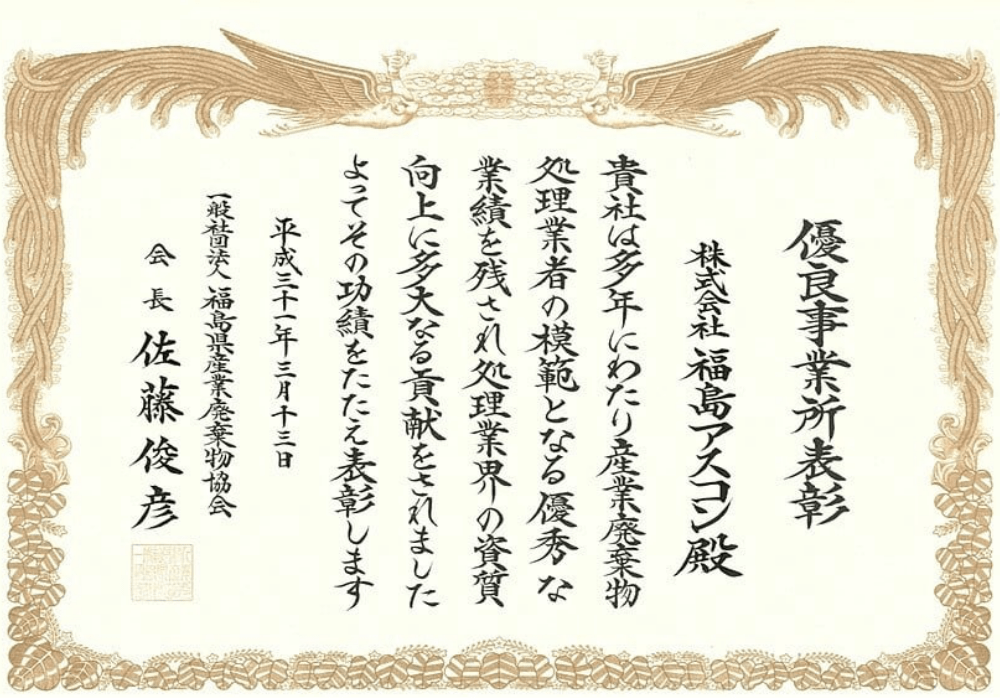 優良事業所表彰
株式会社 福島アスコン 殿
貴社は多年にわたり産業廃棄物
処理業者の模範となる優秀な
業績を残され処理業界の資質
向上に多大なる貢献をされました
よってその功績をたたえ表彰します
平成三十一年三月十三日
一般社団法人 福島県産業廃棄物協会
会長 佐藤俊彦